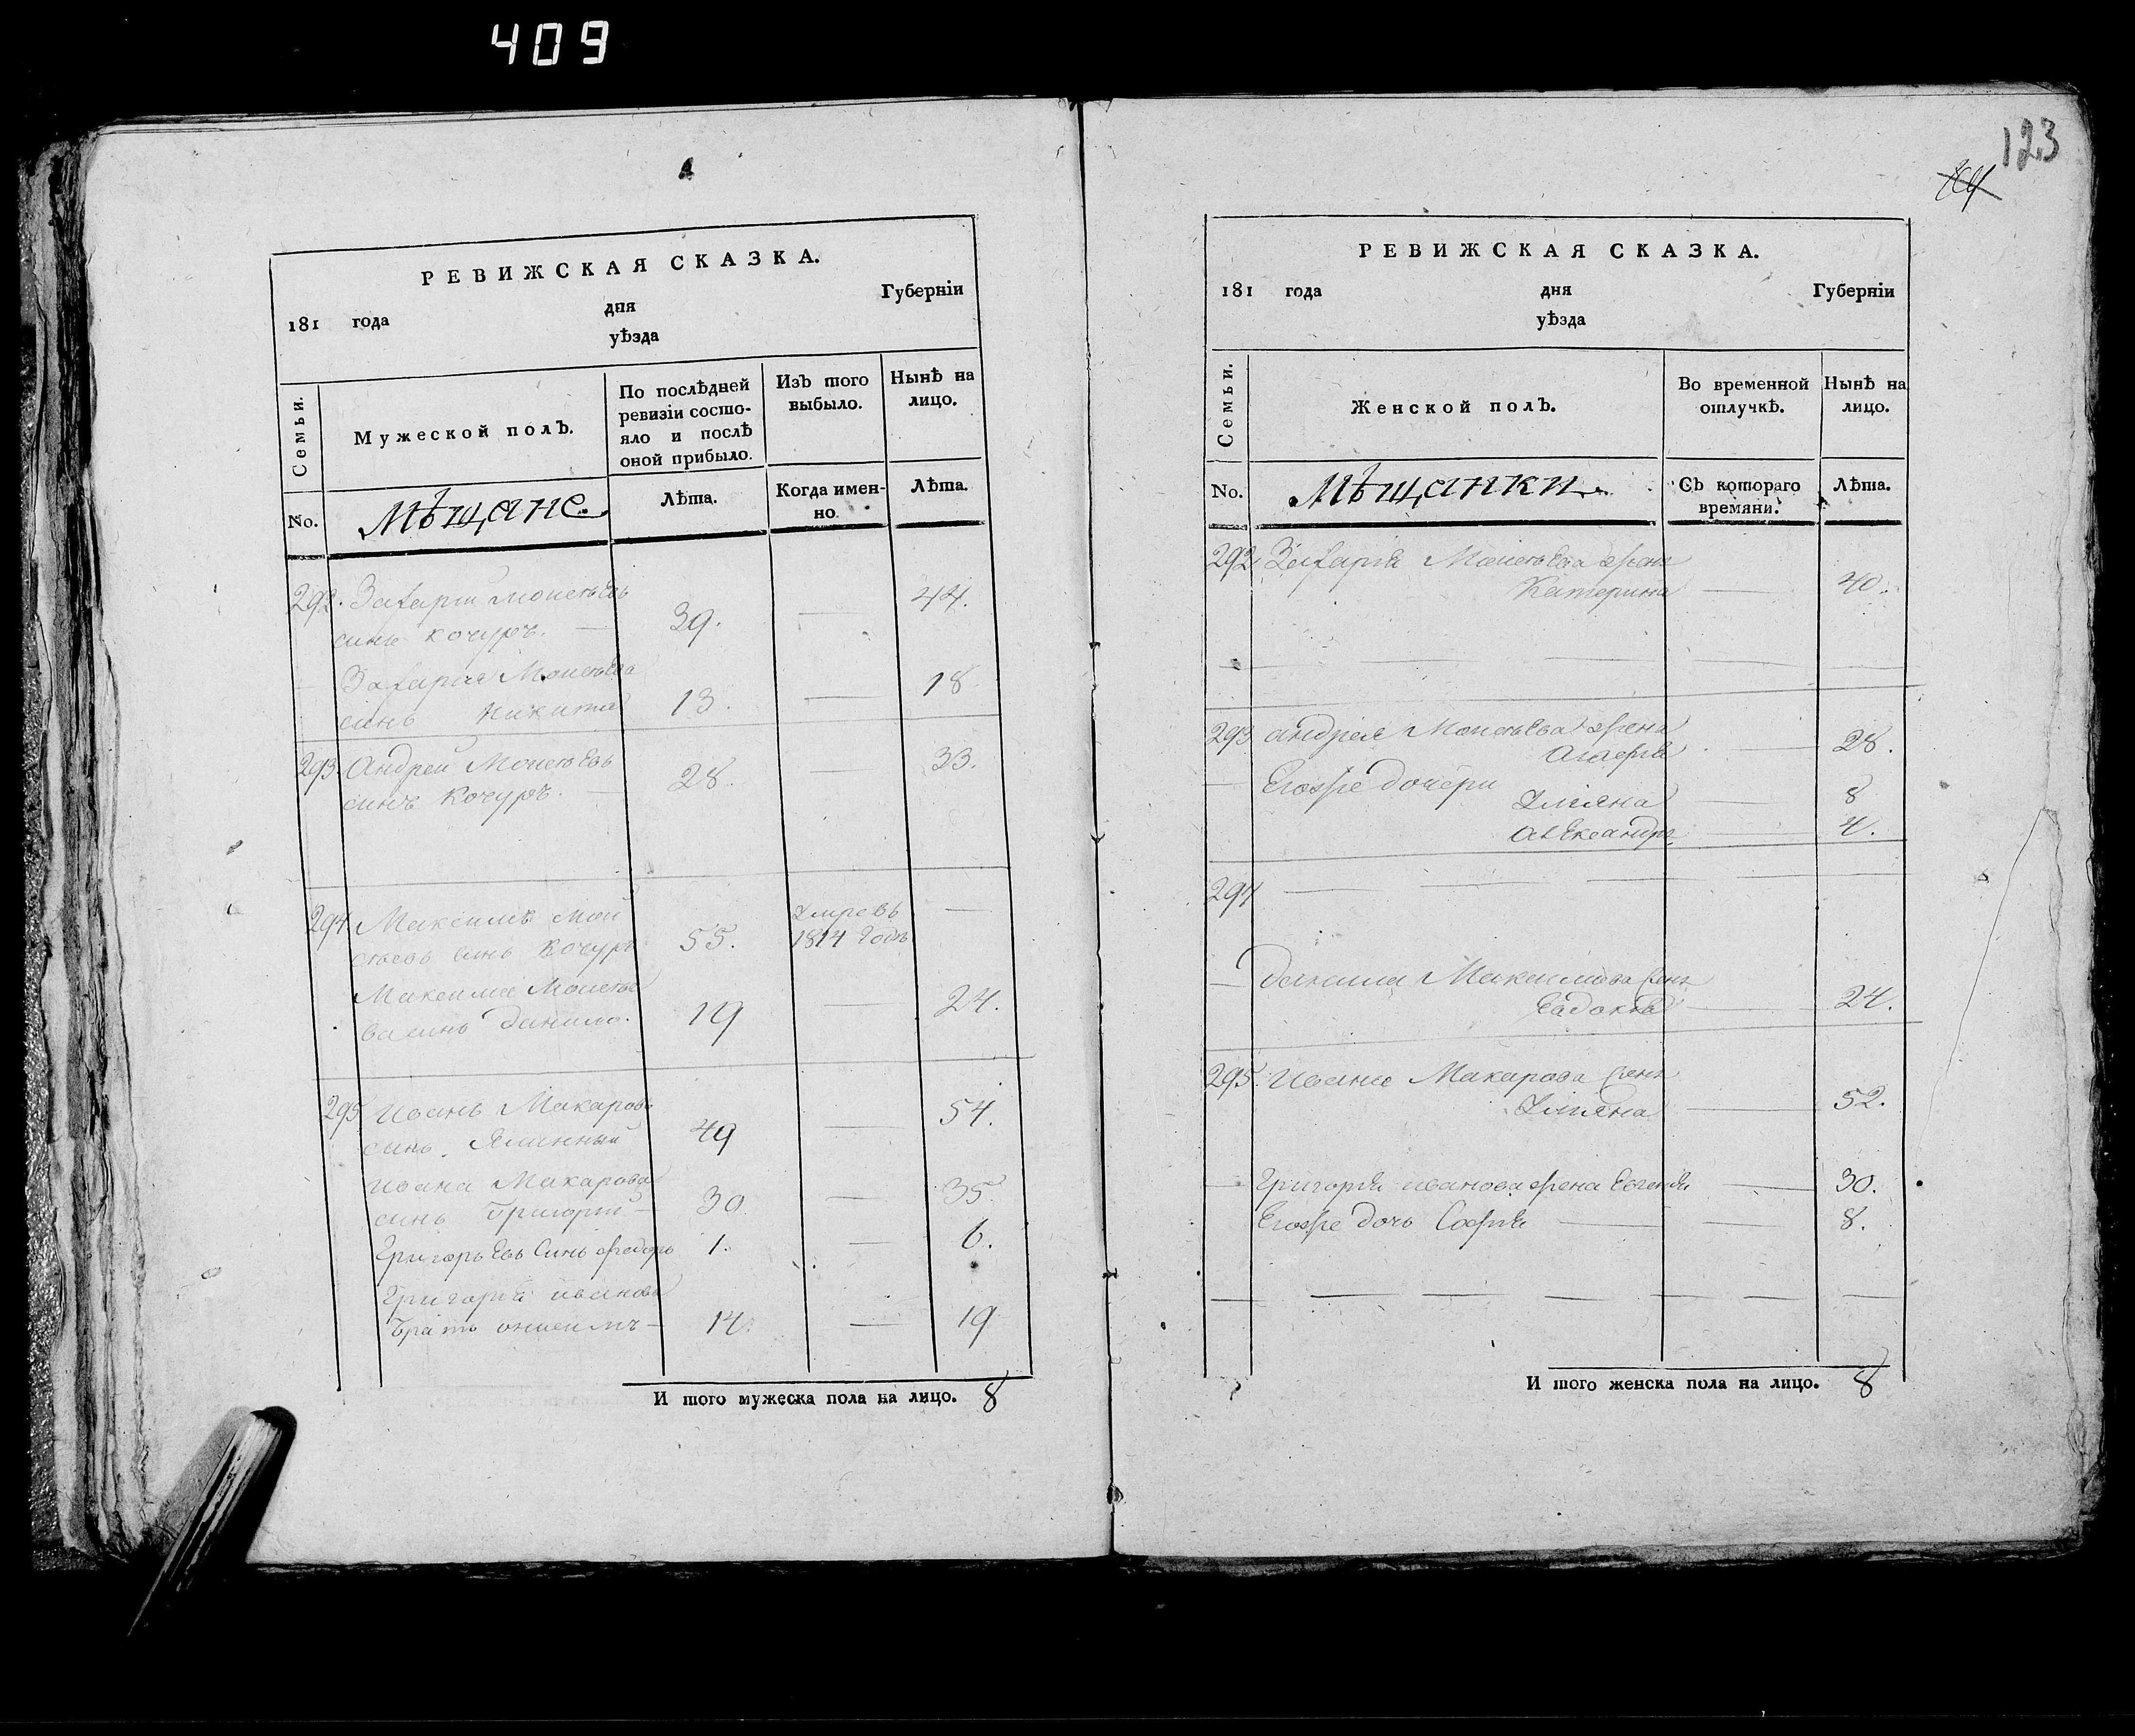 409
РЕВИЖСКАЯ СКАЗКА.
181 года дня Губерніи
уѣзда
Семьи.
Мужеской полъ.
По послѣдней ревизіи состо-
яло и послѣ оной прибыло.
Изъ того выбыло.
Нынѣ на лицо.
No.
Мѣщане.
Лѣта.
Когда имен-
но.
Лѣта.
292. Захарій Моисѣевъ
синъ Кочуръ. — 39. — 44.
Захарія Моисѣева
синъ Никита 13. — 18.
293. Андрей Моисѣевъ
синъ Кочуръ. — 28. — 33.
294 Максимъ Мои
сѣевъ синъ Кочуръ 55. Умревъ 1814 Годъ —
Максима Моисѣе
ва синъ Данило. 19 — 24.
295 Иванъ Макаровъ
синъ 49 — 54.
Ивана Макарова
синъ Григорій — 30. — 35.
Григорьевъ Синъ Федоръ 1. — 6.
Григорія иванова
братъ онисимъ — 14. — 19
И того мужеска пола на лицо. 8
123
РЕВИЖСКАЯ СКАЗКА.
181 года дня Губерніи
уѣзда
Семьи.
Женской полъ.
Во временной отлучкѣ.
Нынѣ на лицо.
No.
Мѣщанки.
Съ котораго времяни.
Лѣта.
292 Захарія Моисѣева жена
Катерина — 40.
293 андрея Моисѣева жена
Агафія — 28.
— Егожъ дочери
Уліяна — 8
александра — 4.
294
— Данила Максимова жена
Евдокія — 24.
295. Ивана Макарова жена
Уліяна — 52.
— Григорія иванова жена Евгенія — 30.
Егожъ дочь Софія — 8.
И того женска пола на лицо. 8